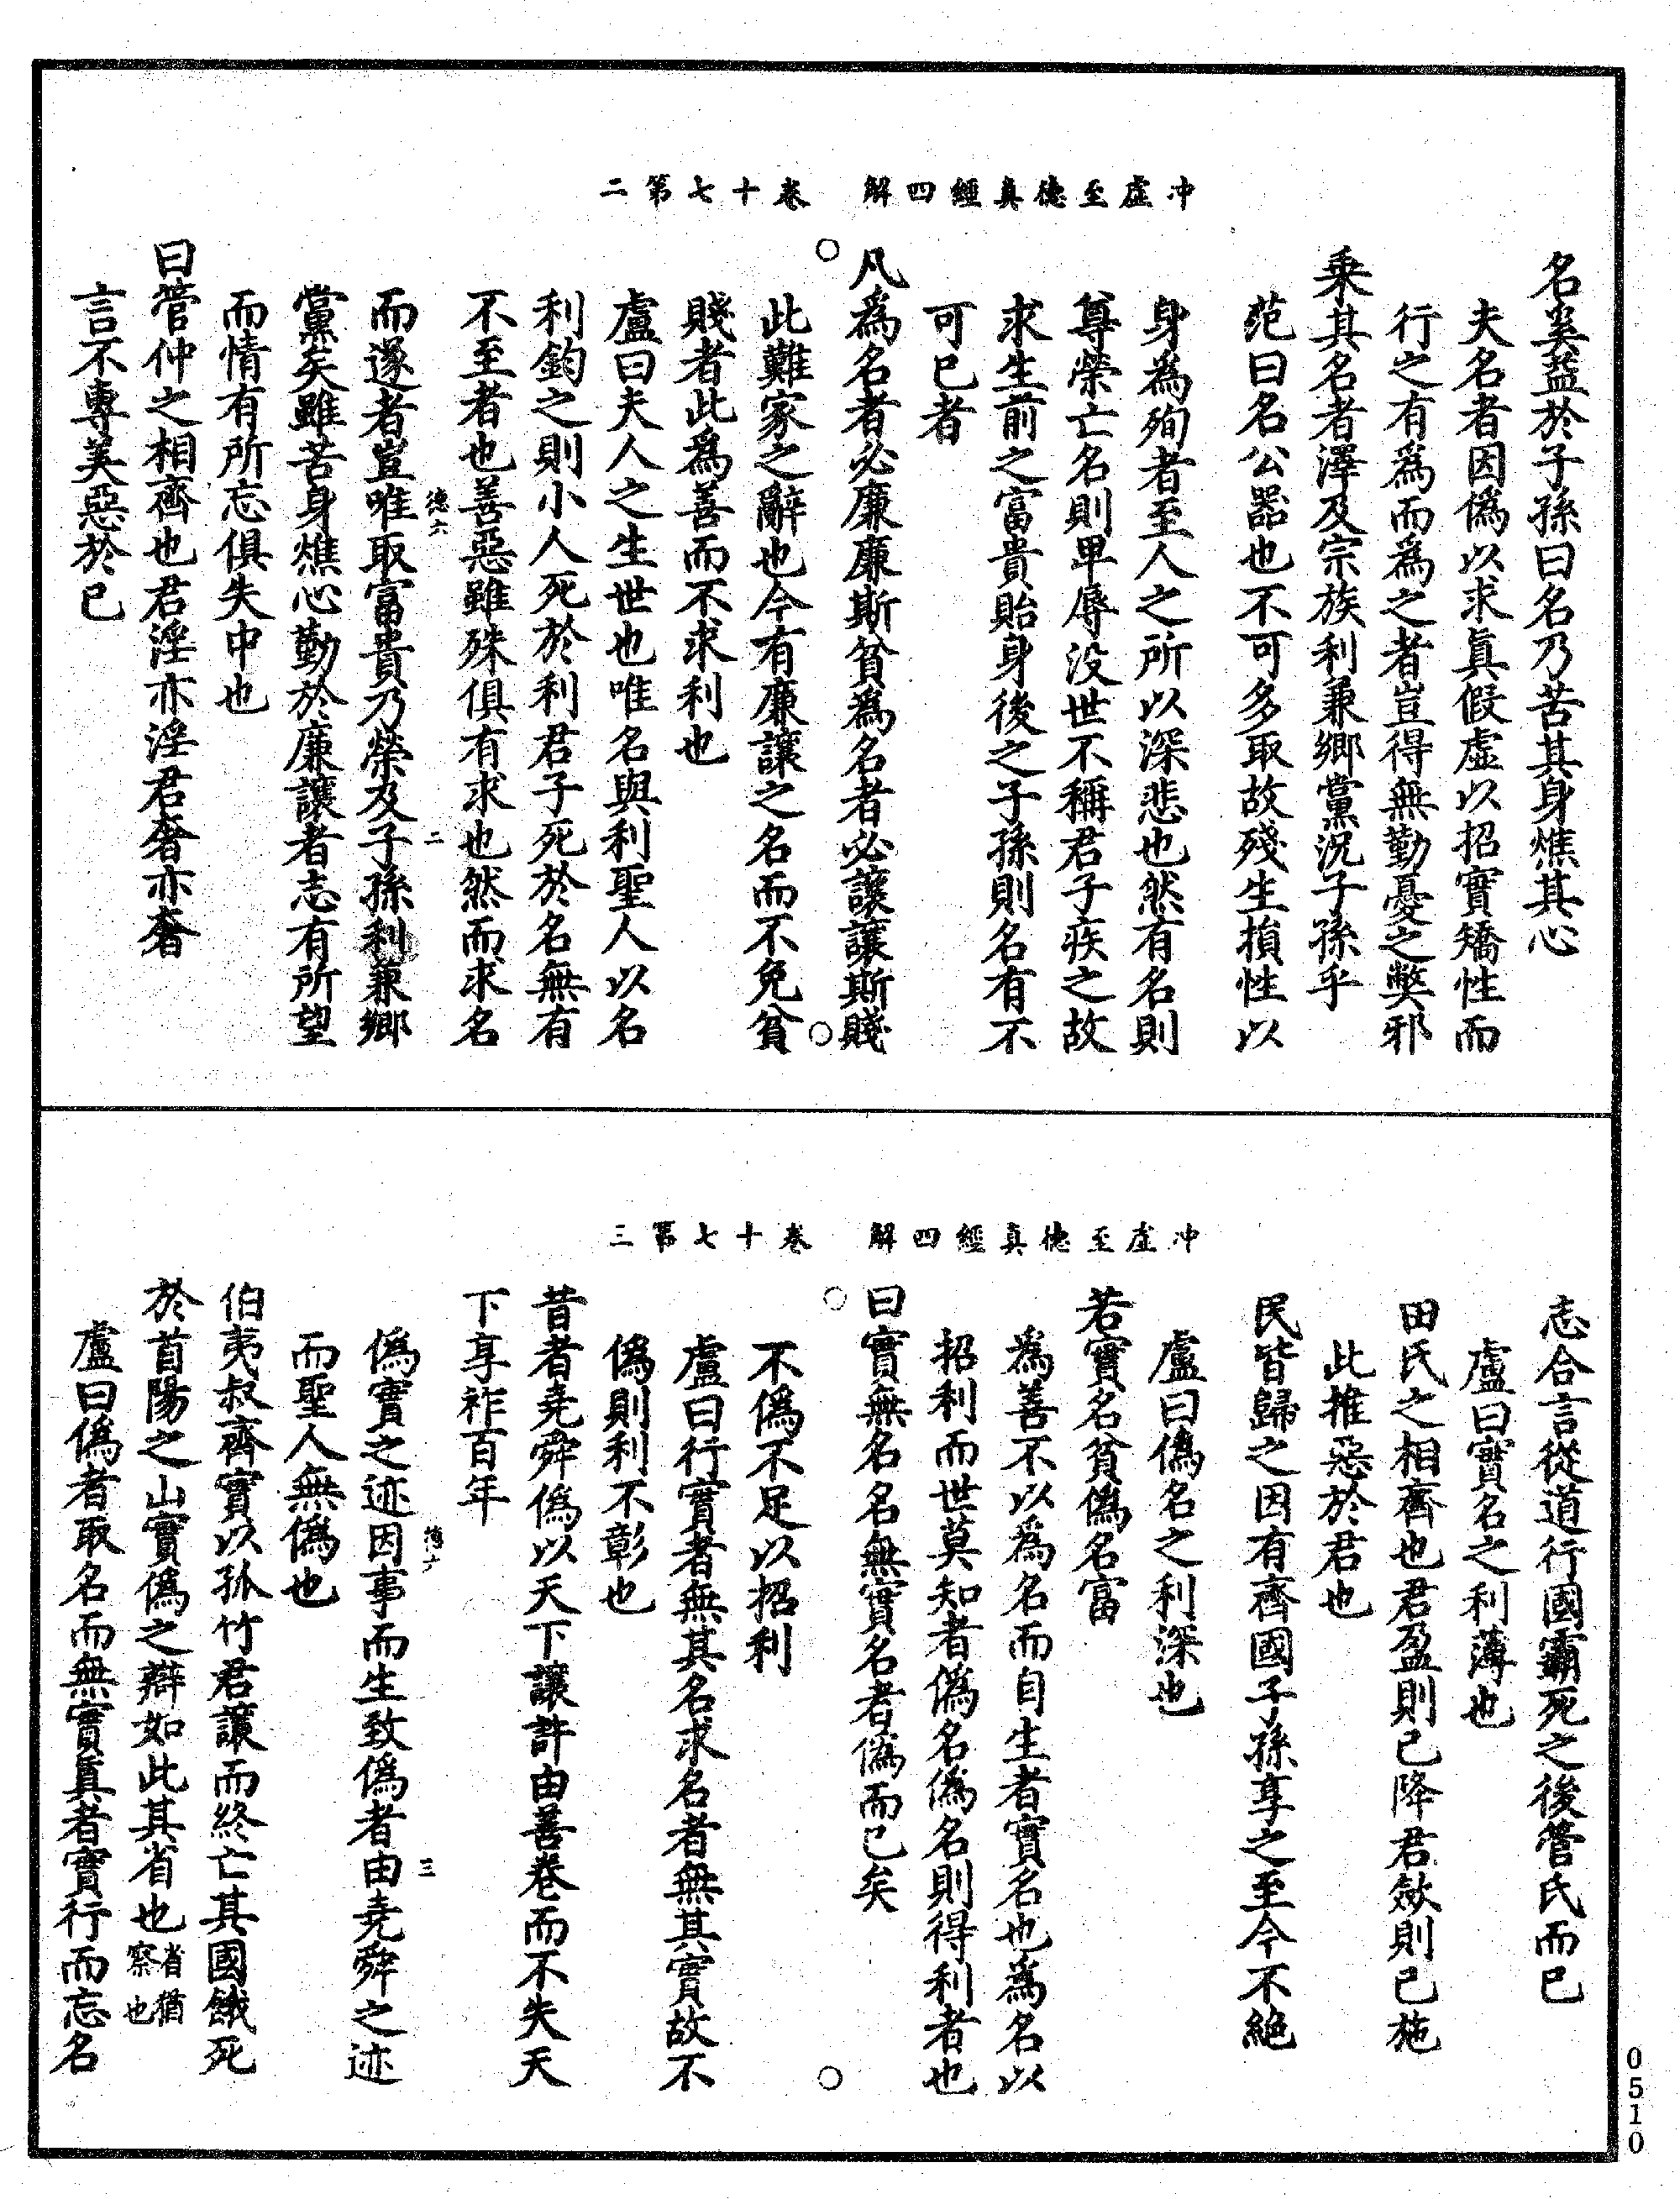 冲虚至德真經四解　卷十七第二
名奚益於子孫曰名乃苦其身燋其心
夫名者因偽以求真假虚以招實矯性而
行之有為而為之者豈得無勤憂之弊邪
乗其名者澤及宗族利兼鄉黨況子孫乎
范曰名公器也不可多取故殘生損性以
身為殉者至人之所以深悲也然有名則
尊榮亡名則卑辱没世不稱君子疾之故
求生前之富貴貽身後之子孫則名有不
可已者
凡為名者必廉廉斯貧為名者必讓讓斯賤
此難家之辭也今有廉讓之名而不免貧
賤者此為善而不求利也
盧曰夫人之生世也唯名與利聖人以名
利鈞之則小人死於利君子死於名無有
不至者也善惡雖殊俱有求也然而求名
德六　二
而遂者豈唯取富貴乃榮及子孫利兼鄉
黨矣雖苦身燋心勤於廉讓者志有所望
而情有所忘俱失中也
曰管仲之相齊也君淫亦淫君奢亦奢
言不專美惡於己
冲虚至德真經四解　卷十七第三
志合言從道行國霸死之後管氏而已
盧曰實名之利薄也
田氏之相齊也君盈則己降君斂則己施
此推惡於君也
民皆歸之因有齊國子孫享之至今不絶
盧曰偽名之利深也
若實名貧偽名富
為善不以為名而自生者實名也為名以
招利而世莫知者偽名偽名則得利者也
曰實無名名無實名者偽而已矣
不偽不足以招利
盧曰行實者無其名求名者無其實故不
偽則利不彰也
昔者堯舜偽以天下讓許由善卷而不失天
下享祚百年
德六　三
偽實之迹因事而生致偽者由堯舜之迹
而聖人無偽也
伯夷叔齊實以孤竹君讓而終亡其國餓死
於首陽之山實偽之辯如此其省也省猶察也
盧曰偽者取名而無實真者實行而忘名
0510